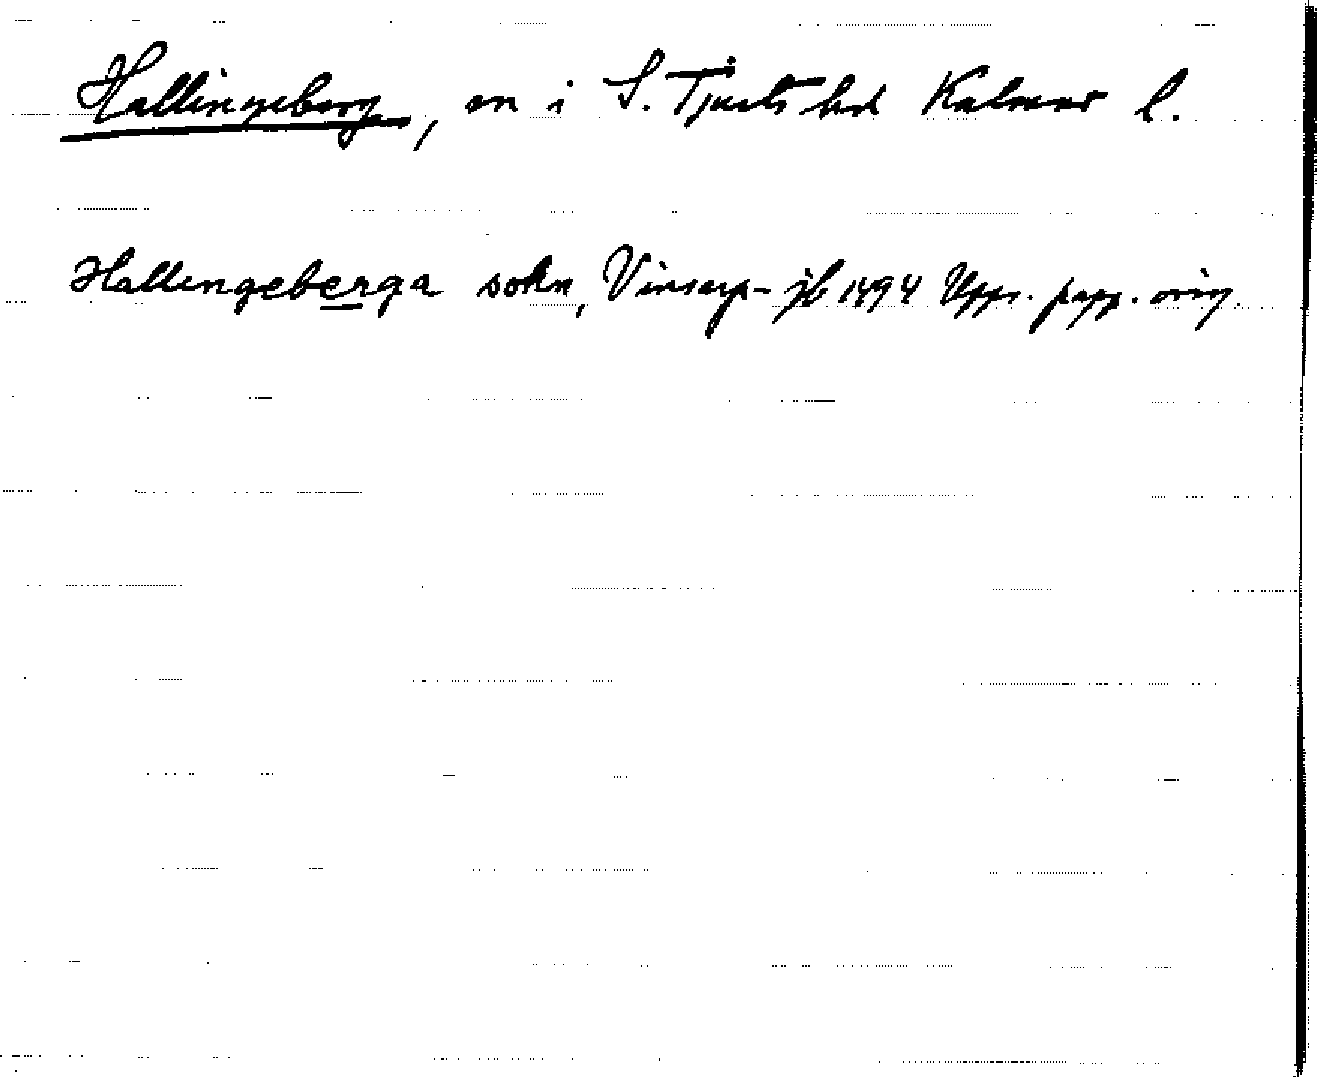 Hallingeberg, sn i S. Tjusts hd Kalmar l.
Hallingeberga sokn, Vinsarp- jb 1494 Upps. papp. orig.